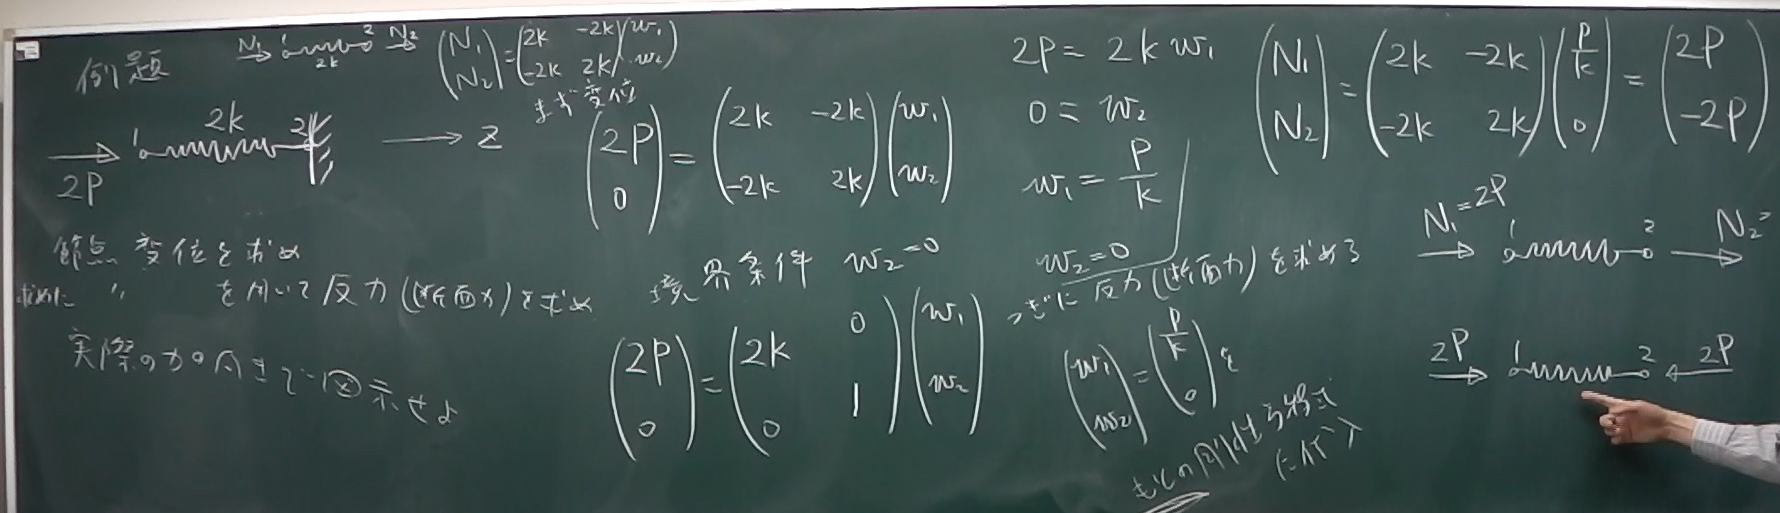 例題
N₁ 1 2 N₂
2k
(N₁ N₂) = (2k -2k -2k 2k)(w₁ w₂)
2P 1 2k 2 → z
まず変位
(2P 0) = (2k -2k -2k 2k)(w₁ w₂)
節点変位を求め
求めた 〃 を用いて反力(断面力)を求め
実際の力の向きで図示せよ
境界条件 w₂=0
(2P 0) = (2k 0 0 1)(w₁ w₂)
2P = 2k w₁
0 = w₂
w₁ = P/k
w₂=0
つぎに反力(断面力)を求める
(w₁ w₂) = (P/k 0) を
もとの剛性方程式
に代入
(N₁ N₂) = (2k -2k -2k 2k)(P/k 0) = (2P -2P)
N₁=2P 1 2 N₂=
2P 1 2 2P